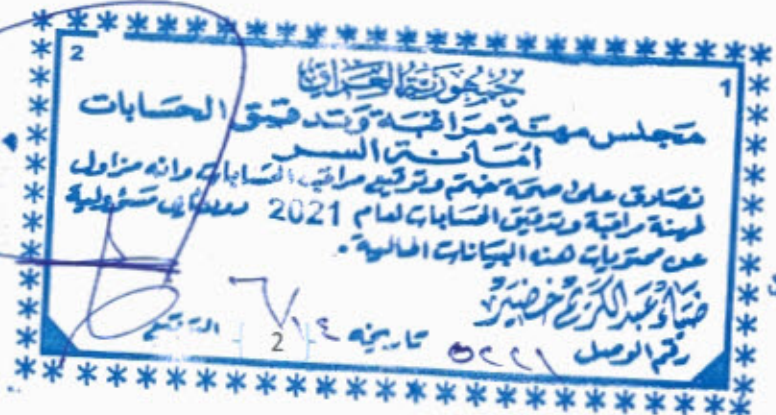 2
1
جمهورية العراق
مجلس مهنة مراقبة وتدقيق الحسابات
أمانة السر
نصادق على صحة ختم وتوقيع مراقب الحسابات وانه مزاول
لمهنة مراقبة وتدقيق الحسابات لعام 2021 دون اي مسؤولية
عن محتويات هذه البيانات المالية .
ضياء عبدالكريم خضير
رقم الوصل ٥٢٢١ تاريخه ٦/١٤ التوقيع
2